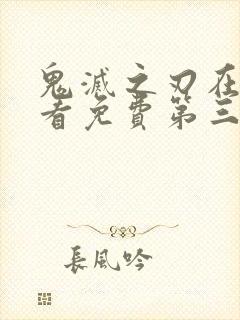 鬼滅之刃在
看免費第三
長風吟